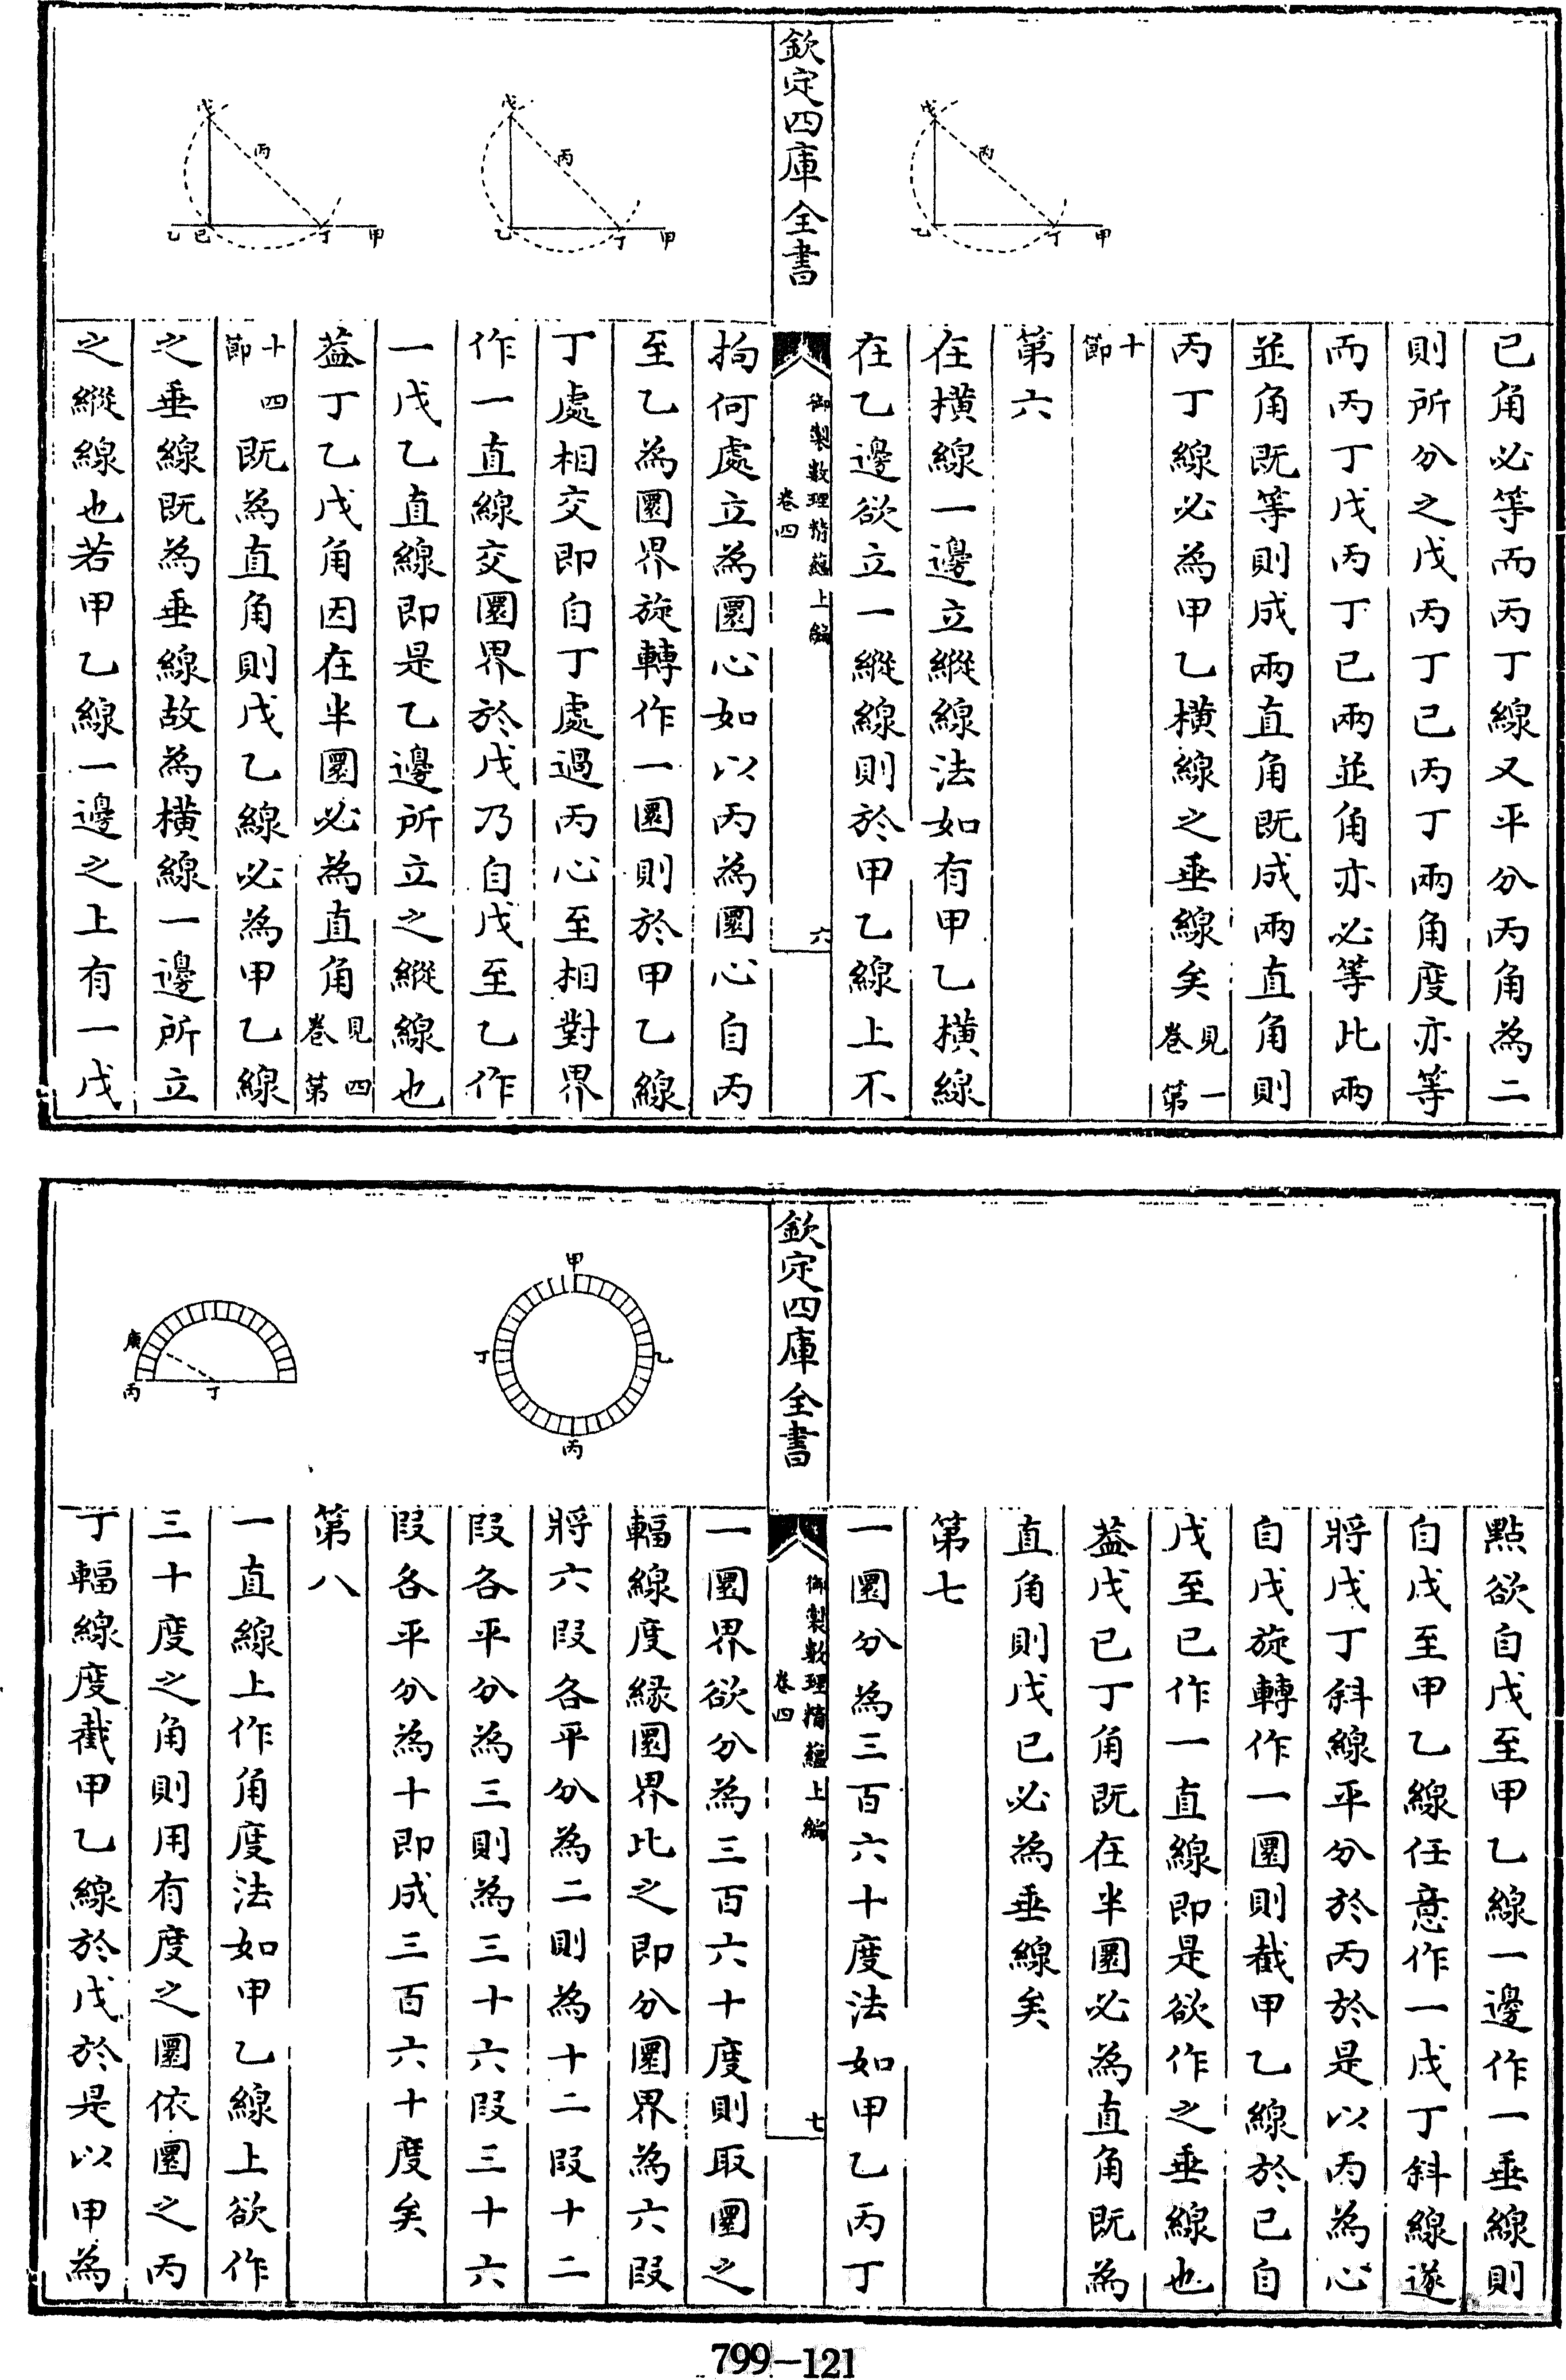 已角必等而丙丁線又平分丙角為二
則所分之戊丙丁已丙丁兩角度亦等
而丙丁戊丙丁已兩並角亦必等此兩
並角既等則成兩直角既成兩直角則
丙丁線必為甲乙橫線之垂線矣見一卷第
十節
第六
在橫線一邊立縱線法如有甲乙橫線
在乙邊欲立一縱線則於甲乙線上不
欽定四庫全書
御製數理精蘊上編
卷四
六
拘何處立為圜心如以丙為圜心自丙
至乙為圜界旋轉作一圜則於甲乙線
丁處相交即自丁處過丙心至相對界
作一直線交圜界於戊乃自戊至乙作
一戊乙直線即是乙邊所立之縱線也
葢丁乙戊角因在半圜必為直角見四卷第
十四節既為直角則戊乙線必為甲乙線
之垂線既為垂線故為橫線一邊所立
之縱線也若甲乙線一邊之上有一戊
戊
丙
乙
丁
甲
戊
丙
乙
丁
甲
戊
丙
乙
已
丁
甲
點欲自戊至甲乙線一邊作一垂線則
自戊至甲乙線任意作一戊丁斜線遂
將戊丁斜線平分於丙於是以丙為心
自戊旋轉作一圜則截甲乙線於已自
戊至已作一直線即是欲作之垂線也
葢戊已丁角既在半圜必為直角既為
直角則戊已必為垂線矣
第七
一圜分為三百六十度法如甲乙丙丁
欽定四庫全書
御製數理精蘊上編
卷四
七
一圜界欲分為三百六十度則取圜之
輻線度緣圜界比之即分圜界為六段
將六段各平分為二則為十二段十二
段各平分為三則為三十六段三十六
段各平分為十即成三百六十度矣
第八
一直線上作角度法如甲乙線上欲作
三十度之角則用有度之圜依圜之丙
丁輻線度截甲乙線於戊於是以甲為
甲
乙
丙
丁
庚
丙
丁
799–121